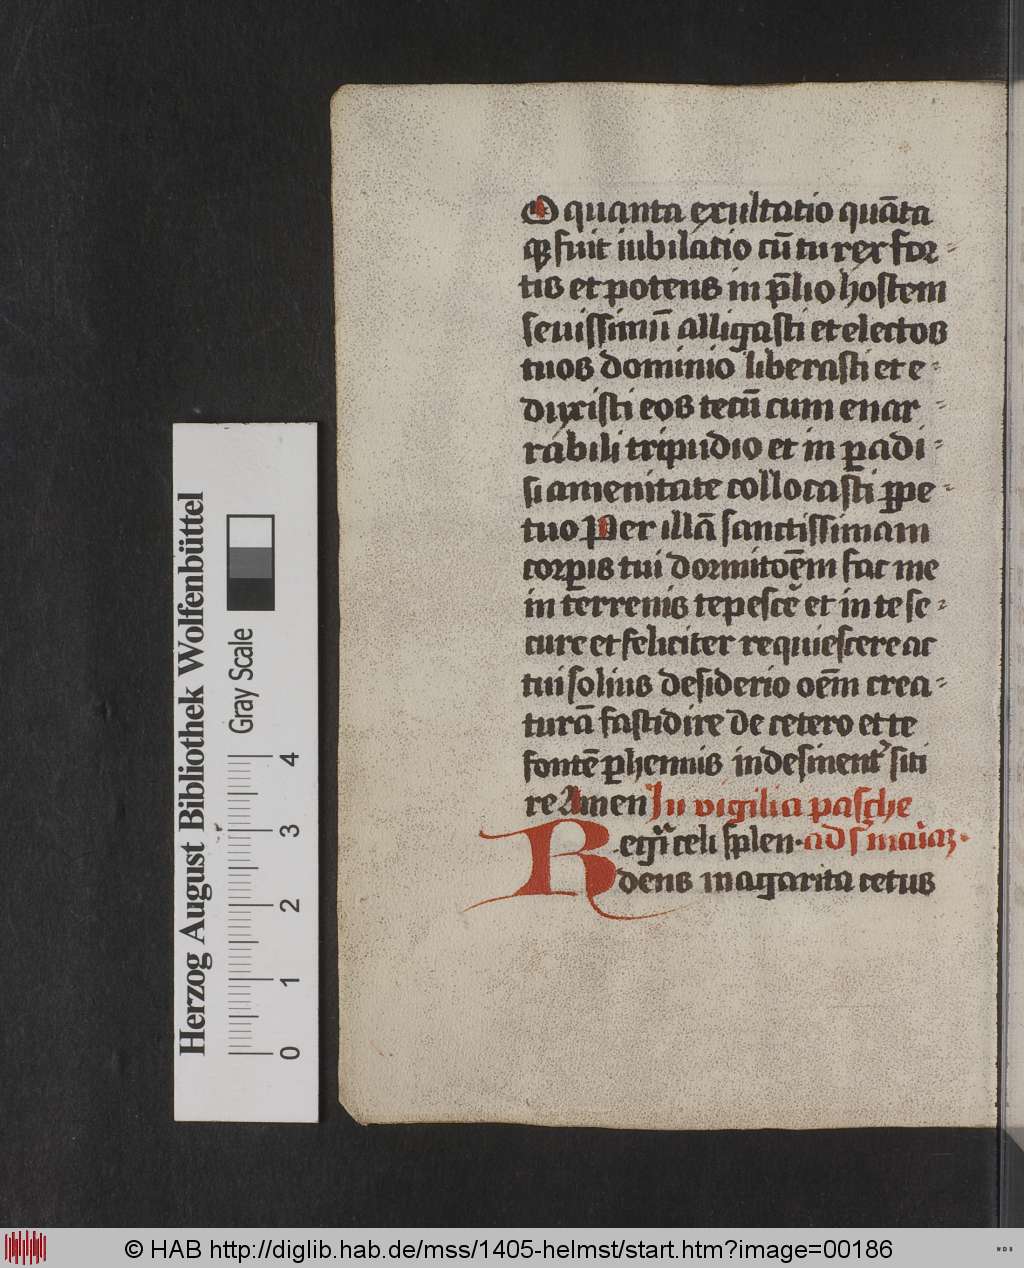 O quanta exultatio quāta
qꝫ fuit iubilatio cū tu rex for-
tis et potens in p̄lio hostem
seuissimū alligasti et electos
tuos dominio liberasti et e-
duxisti eos tecū cum enar-
rabili tripudio et in ꝑadi-
si amenitate collocasti ꝑpe-
tuo Per illā sanctissimam
corꝑis tui dormitōem fac me
in terrenis tepescē et in te se-
cure et feliciter requiescere ac
tui solius desiderio oēm crea-
turā fastidire de cetero et te
fontē ꝑhennis indesinentˀ siti
re Amen In vigilia pasche
Regīa celi splen· ad s maiaꝝ·
dens magarita cetus
Herzog August Bibliothek Wolfenbüttel
Gray Scale
0 1 2 3 4
© HAB http://diglib.hab.de/mss/1405-helmst/start.htm?image=00186